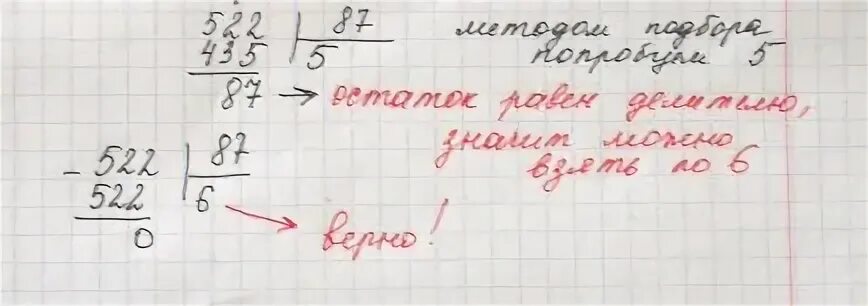 522 | 87 методом подбора
435 | 5 попробуем 5
87 → остаток равен делителю,
значит можно
взять по 6
- 522 | 87
522 | 6
0 → верно!